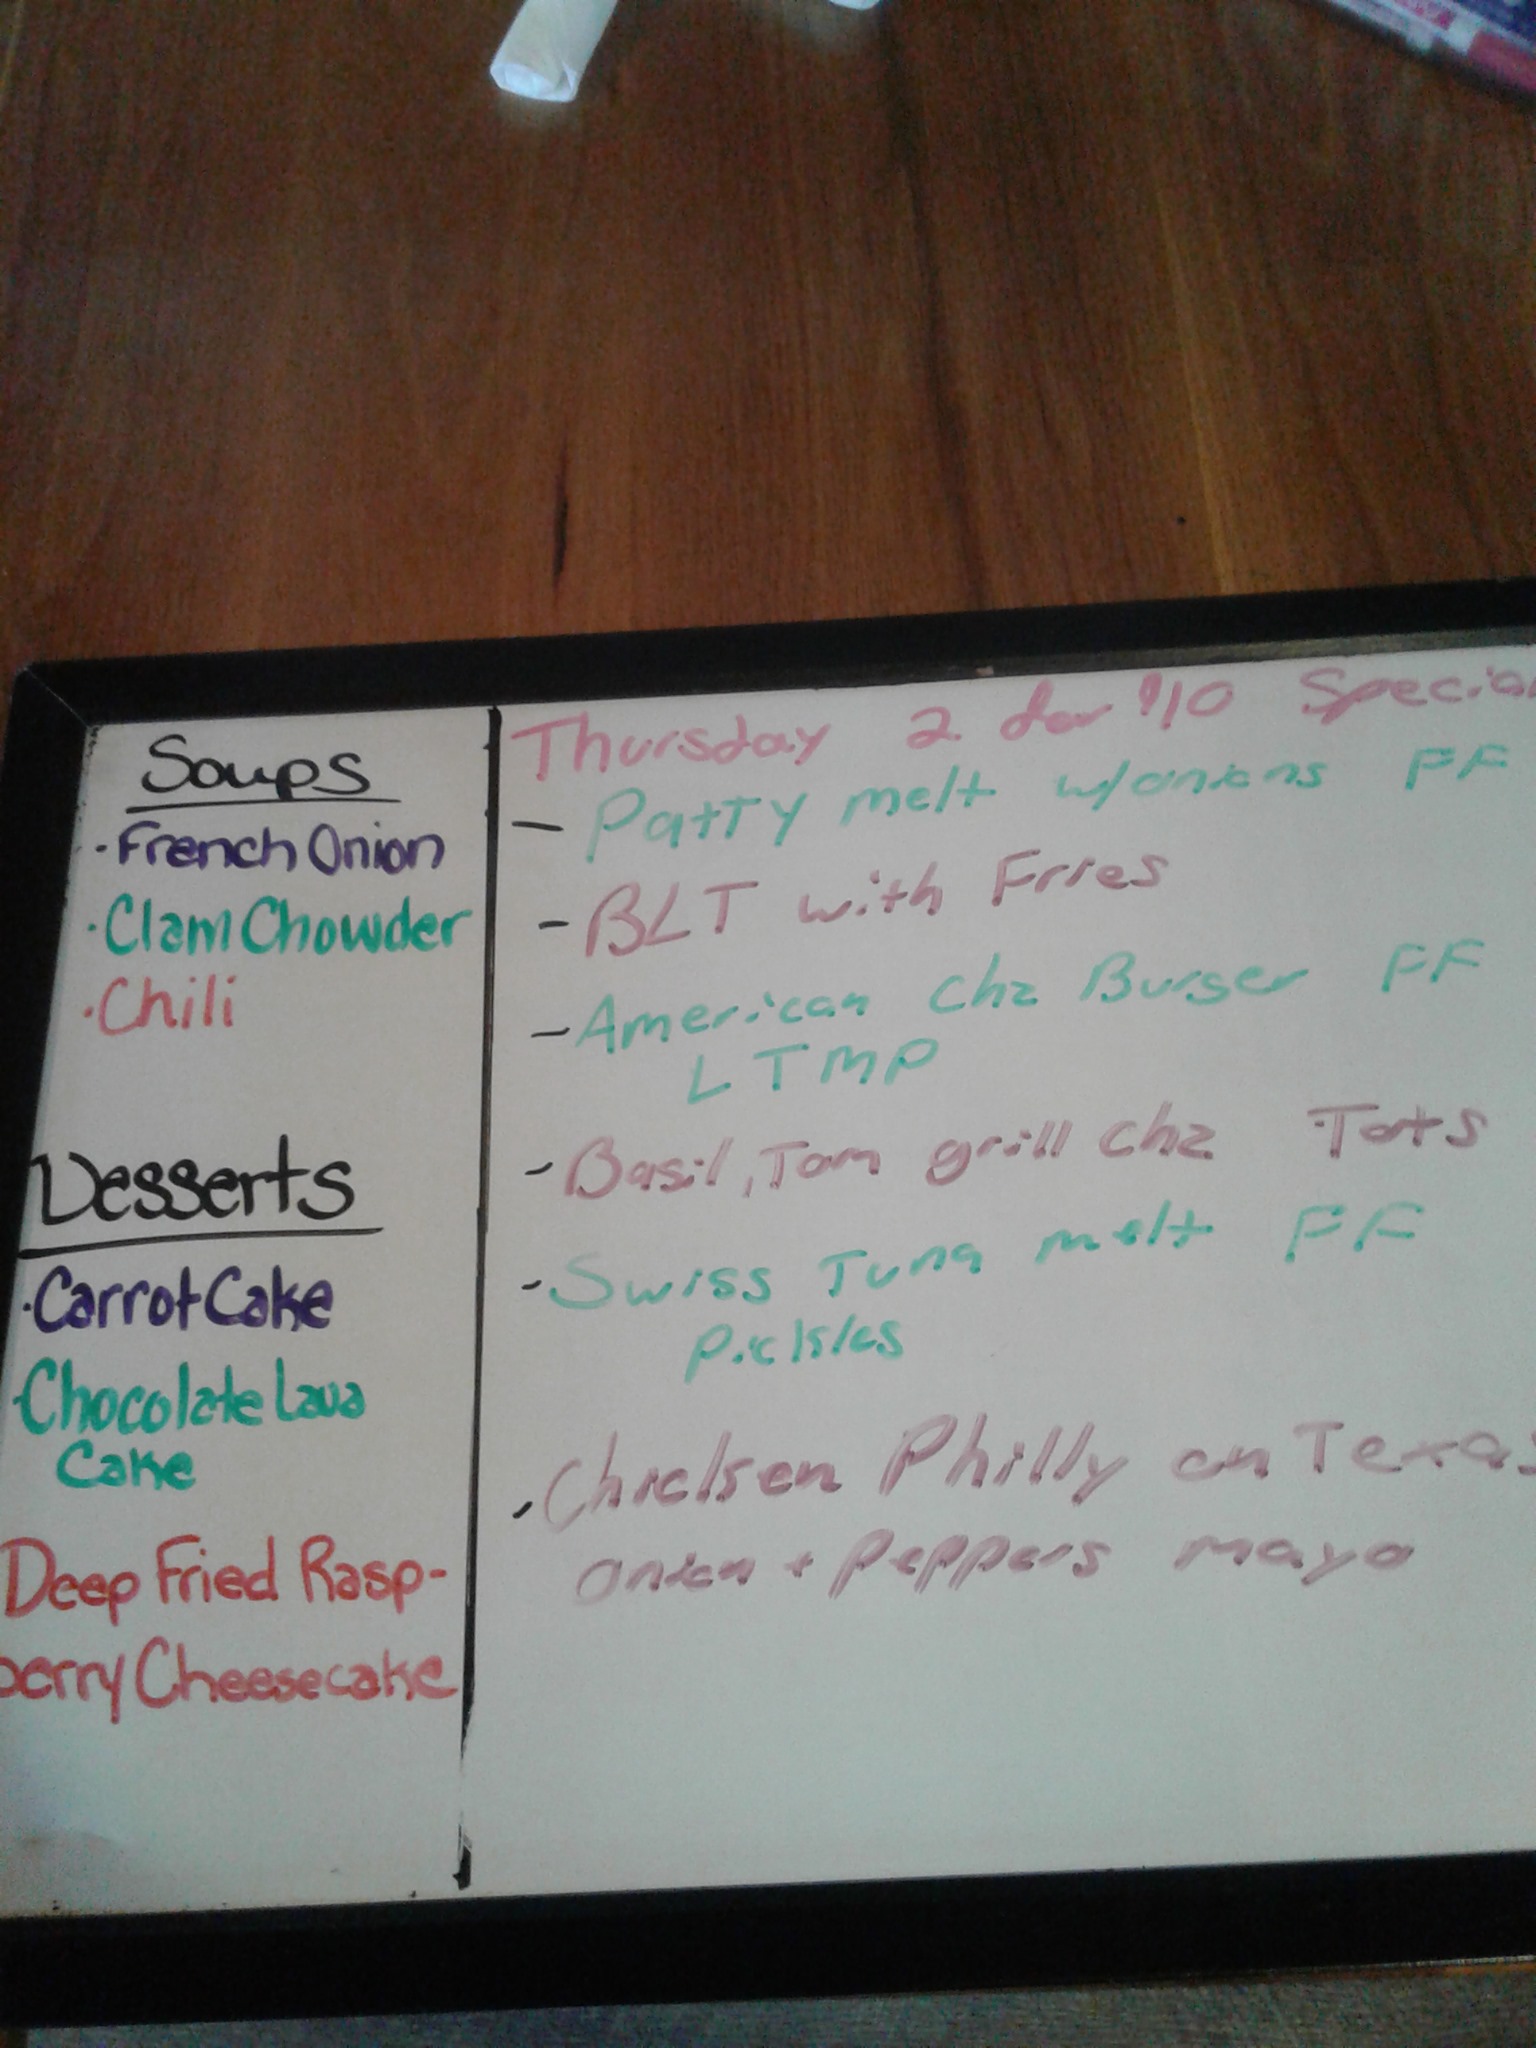 Soups
· French Onion
· Clam Chowder
· Chili
Desserts
· Carrot Cake
· Chocolate Lava
Cake
Deep Fried Rasp-
berry Cheesecake
Thursday 2 for $10 Special
- Patty melt w/onions FF
- BLT with Fries
- American Chz Burger FF
L T M P
- Basil, Tom grill chz Tots
- Swiss Tuna melt FF
Pickles
- Chicken Philly on Texas
onion + Peppers mayo